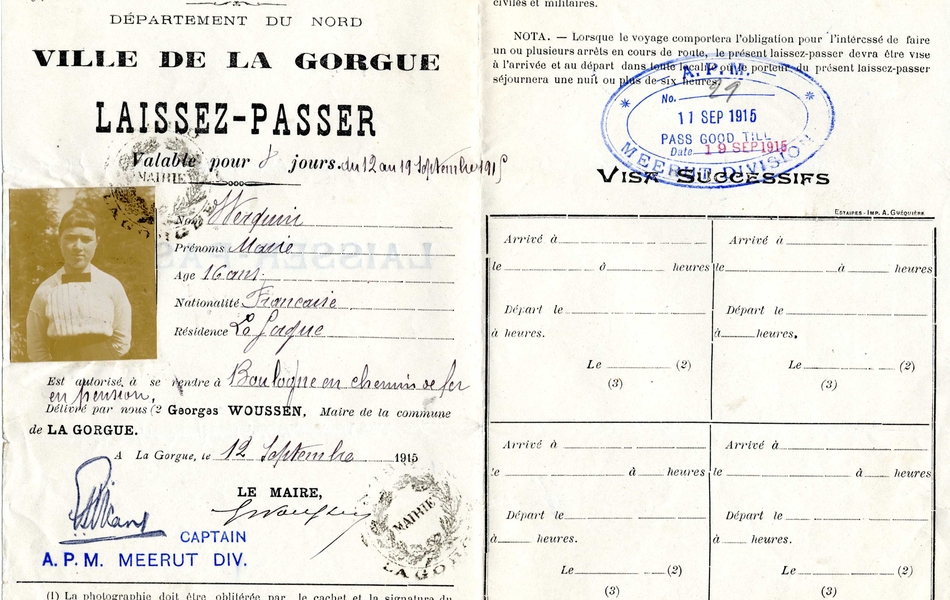 DÉPARTEMENT DU NORD
VILLE DE LA GORGUE
LAISSEZ-PASSER
Valable pour 8 jours. du 12 au 19 Septembre 1915
MAIRIE
LA GORGUE
Nom Werquin
Prénoms Marie
Age 16 ans
Nationalité Française
Résidence La Gorgue
Est autorisé, à se rendre à Boulogne en chemin de fer
en pension,
Délivré par nous (2 Georges WOUSSEN, Maire de la commune
de LA GORGUE.
A La Gorgue, le 12 Septembre 1915
LE MAIRE,
GWoussen
MAIRIE
LA GORGUE
CAPTAIN
A. P. M. MEERUT DIV.
(1) La photographie doit être oblitérée par le cachet et la signature du
civiles et militaires.
NOTA. — Lorsque le voyage comportera l'obligation pour l'intéressé de faire
un ou plusieurs arrêts en cours de route, le présent laissez-passer devra être visé
à l'arrivée et au départ dans toute localité où le porteur du présent laissez-passer
séjournera une nuit ou plus de six heures.
A. P. M.
No. 29
11 SEP 1915
PASS GOOD TILL
Date 19 SEP 1915
MEERUT DIVISION
VISA SUCCESSIFS
ESTAIRES - IMP. A. GUÉQUIÈRE
Arrivé à
le à heures
Départ le
à heures.
Le (2)
(3)
Arrivé à
le à heures
Départ le
à heures.
Le (2)
(3)
Arrivé à
le à heures
Départ le
à heures.
Le (2)
(3)
Arrivé à
le à heures
Départ le
à heures.
Le (2)
(3)